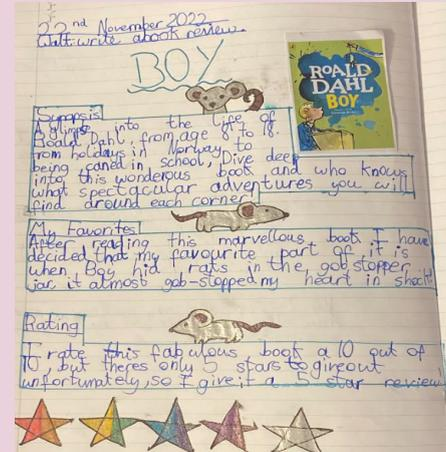 22nd November 2022
Walt: write a book review.
BOY
ROALD
DAHL
BOY
Synopsis
A glimpse into the life of
Roald Dahl, from age 8 to 18.
rom holidays in Norway to
being caned in school, Dive deep
into this wonderous book and who knows
what spectacular adventures you will
find around each corner
My Favorites
After reading this marvellous book I have
decided that my favourite part of it is
when Boy hid rats in the gob stopper
jar, it almost gob-stopped my heart in shock!
Rating
I rate this fabulous book a 10 out of
10, but theres only 5 stars to giveout
unfortunately, so I give it a 5 star review